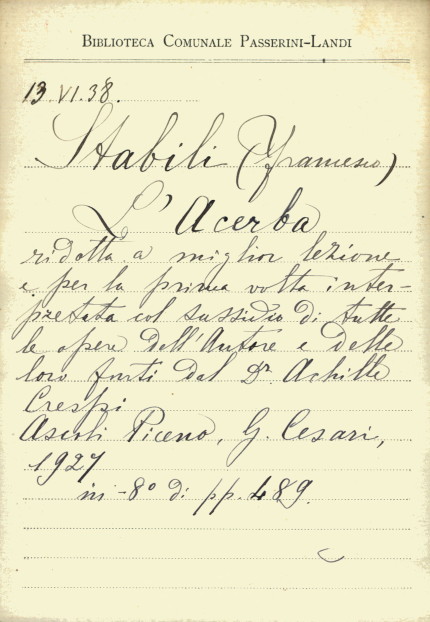 BIBLIOTECA COMUNALE PASSERINI-LANDI
13.VI.38.
Stabili (Francesco)
L'Acerba
ridotta a miglior lezione
e per la prima volta inter-
pretata col sussidio di tutte
le opere dell'Autore e delle
loro fonti dal Dr. Achille
Crespi
Ascoli Piceno, G. Cesari,
1927
in-8° di pp. 489.